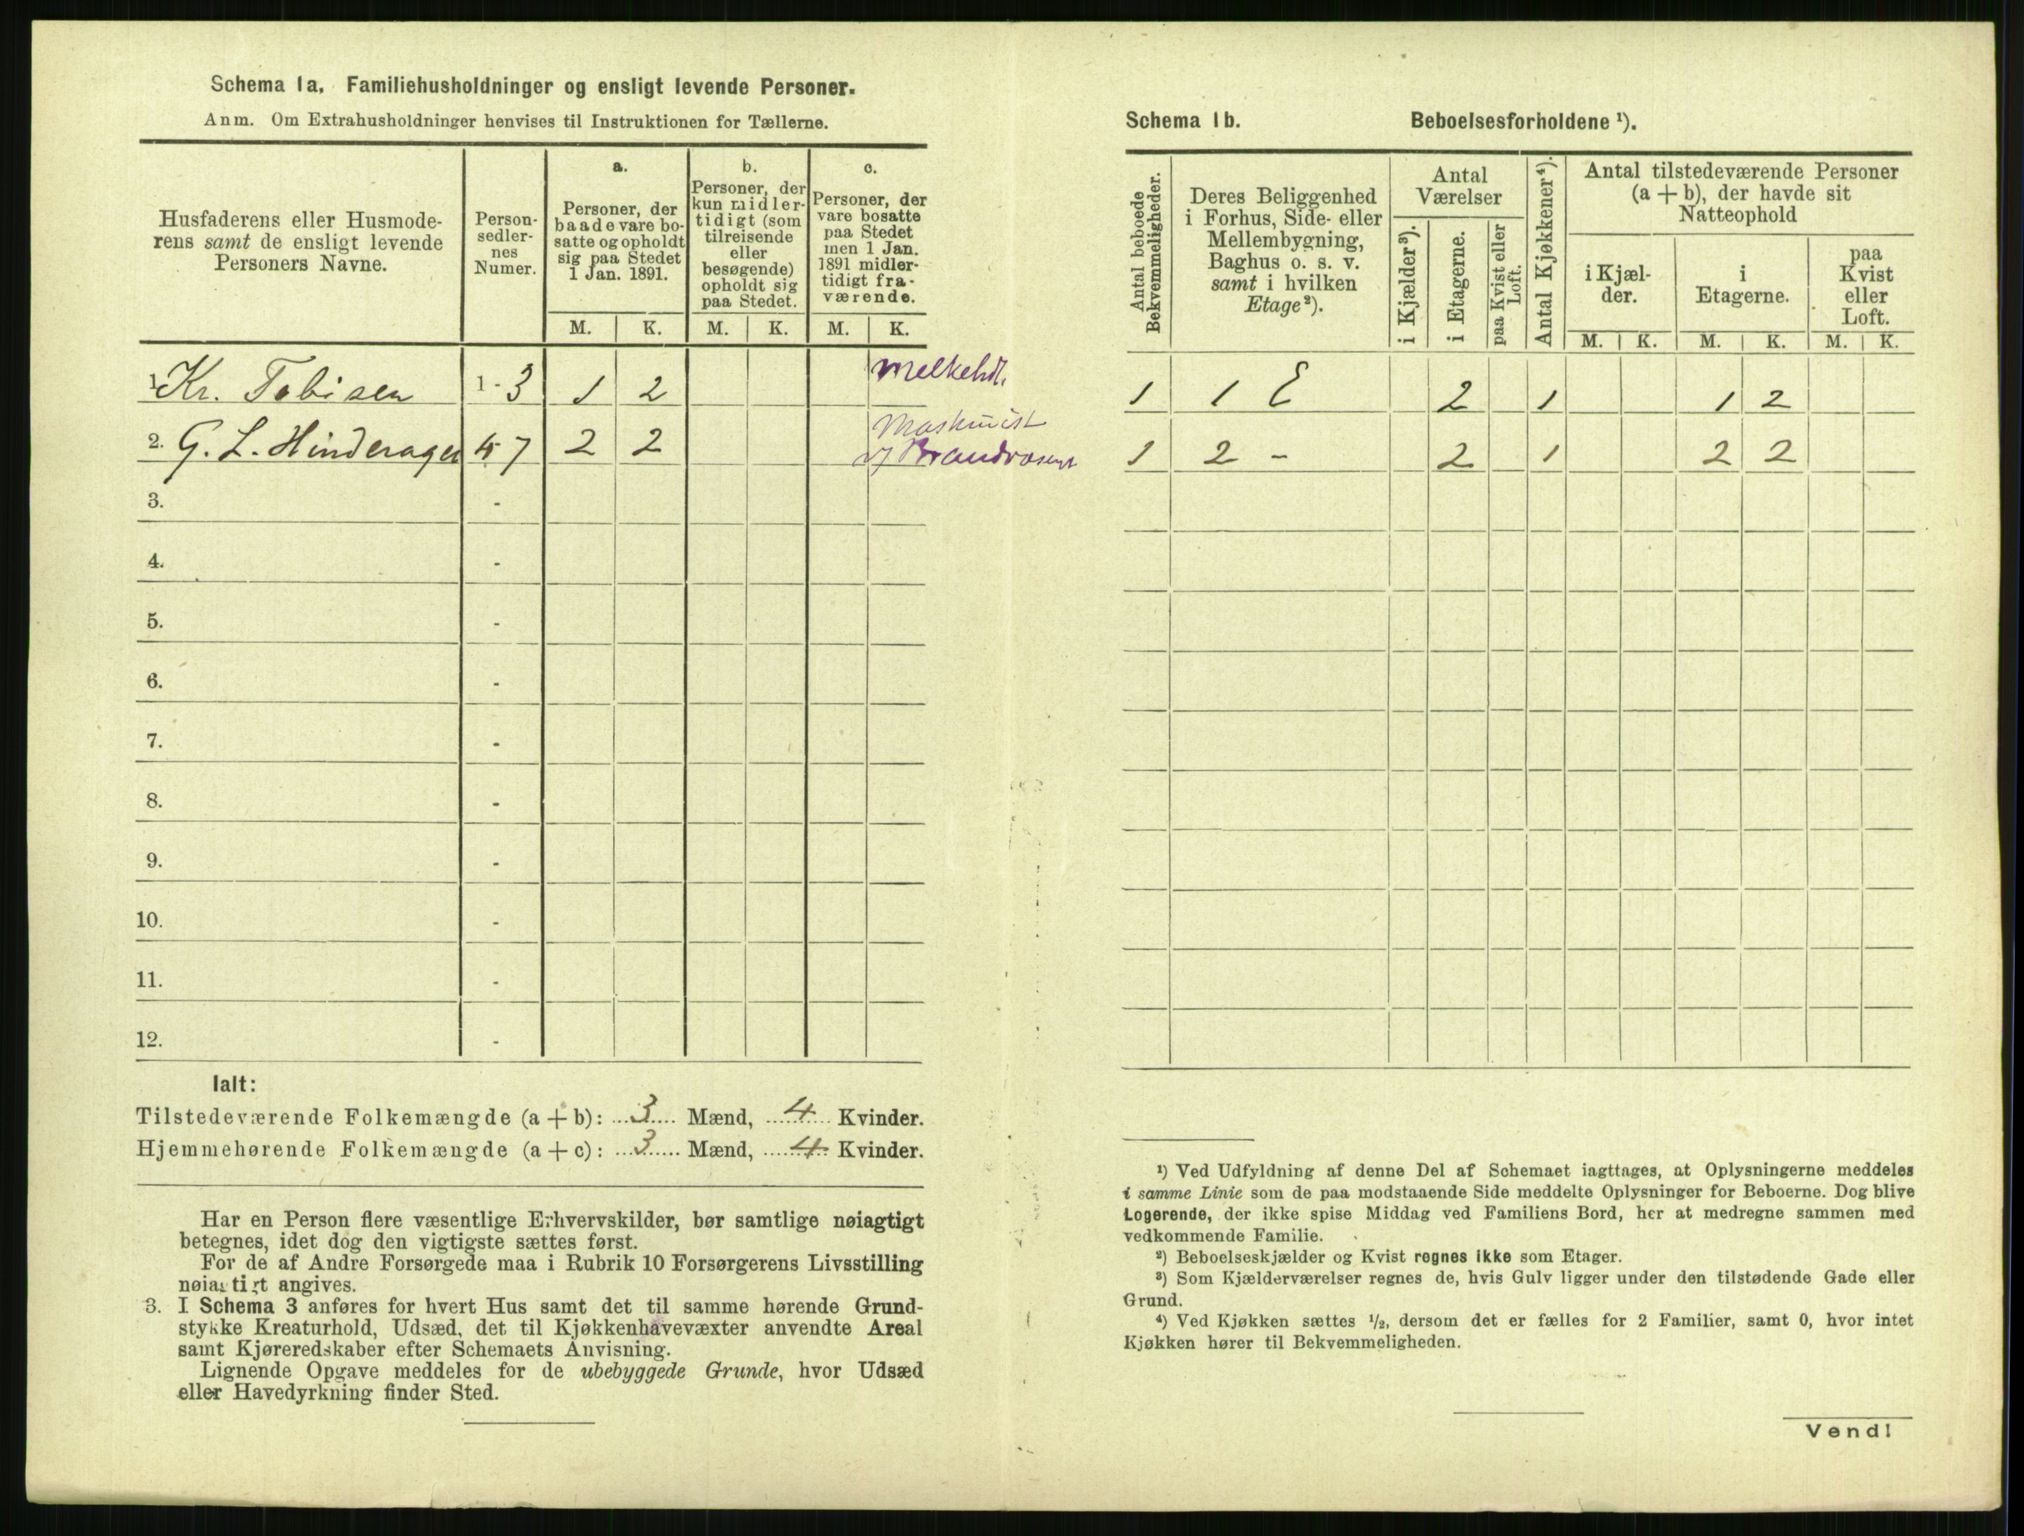 Schema 1a. Familiehusholdninger og ensligt levende Personer.
Anm. Om Extrahusholdninger henvises til Instruktionen for Tællerne.
Husfaderens eller Husmoderens samt de ensligt levende Personers Navne.
Personsedlernes Numer.
a. Personer, der baade vare bosatte og opholdt sig paa Stedet 1 Jan. 1891.
b. Personer, der kun midlertidigt (som tilreisende eller besøgende) opholdt sig paa Stedet.
c. Personer, der vare bosatte paa Stedet men 1 Jan. 1891 midlertidigt fraværende.
M. K. M. K. M. K.
1. Kr. Tobisen 1 - 3 1 2 Melkehdl.
2. G. L. Hinderager 4 - 7 2 2 Maskinist v/ Brandvæsenet
3. -
4. -
5. -
6. -
7. -
8. -
9. -
10. -
11. -
12. -
Ialt:
Tilstedeværende Folkemængde (a + b): 3 Mænd, 4 Kvinder.
Hjemmehørende Folkemængde (a + c): 3 Mænd, 4 Kvinder.
Har en Person flere væsentlige Erhvervskilder, bør samtlige nøiagtigt
betegnes, idet dog den vigtigste sættes først.
For de af Andre Forsørgede maa i Rubrik 10 Forsørgerens Livsstilling
nøiagtigt angives.
3. I Schema 3 anføres for hvert Hus samt det til samme hørende Grund-
stykke Kreaturhold, Udsæd, det til Kjøkkenhavevæxter anvendte Areal
samt Kjøreredskaber efter Schemaets Anvisning.
Lignende Opgave meddeles for de ubebyggede Grunde, hvor Udsæd
eller Havedyrkning finder Sted.
Schema 1b. Beboelsesforholdene ¹).
Antal beboede Bekvemmeligheder.
Deres Beliggenhed i Forhus, Side- eller Mellembygning, Baghus o. s. v. samt i hvilken Etage ²).
Antal Værelser
i Kjælder ³).
i Etagerne.
paa Kvist eller Loft.
Antal Kjøkkener ⁴).
Antal tilstedeværende Personer (a + b), der havde sit Natteophold
i Kjælder.
i Etagerne.
paa Kvist eller Loft.
M. K. M. K. M. K.
1 1 E 2 1 1 2
1 2 - 2 1 2 2
¹) Ved Udfyldning af denne Del af Schemaet iagttages, at Oplysningerne meddeles
i samme Linie som de paa modstaaende Side meddelte Oplysninger for Beboerne. Dog blive
Logerende, der ikke spise Middag ved Familiens Bord, her at medregne sammen med
vedkommende Familie.
²) Beboelseskjælder og Kvist regnes ikke som Etager.
³) Som Kjælderværelser regnes de, hvis Gulv ligger under den tilstødende Gade eller
Grund.
⁴) Ved Kjøkken sættes ½, dersom det er fælles for 2 Familier, samt 0, hvor intet
Kjøkken hører til Bekvemmeligheden.
Vend!